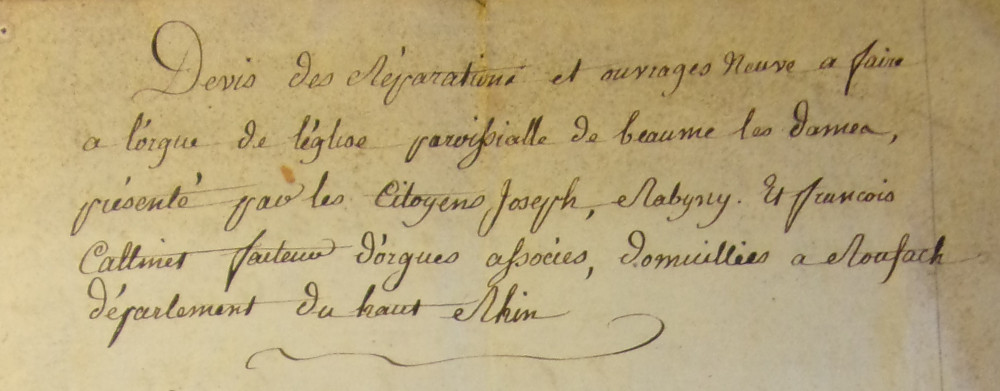 Devis des Réparations et ouvrages Neuve a faire
a l'orgue de l'église paroissialle de beaume les dames,
présenté par les Citoyens Joseph, Rabyny. Et francois
Callinet facteur d'orgues associés, domicilliés a Roufach
département du haut Rhin